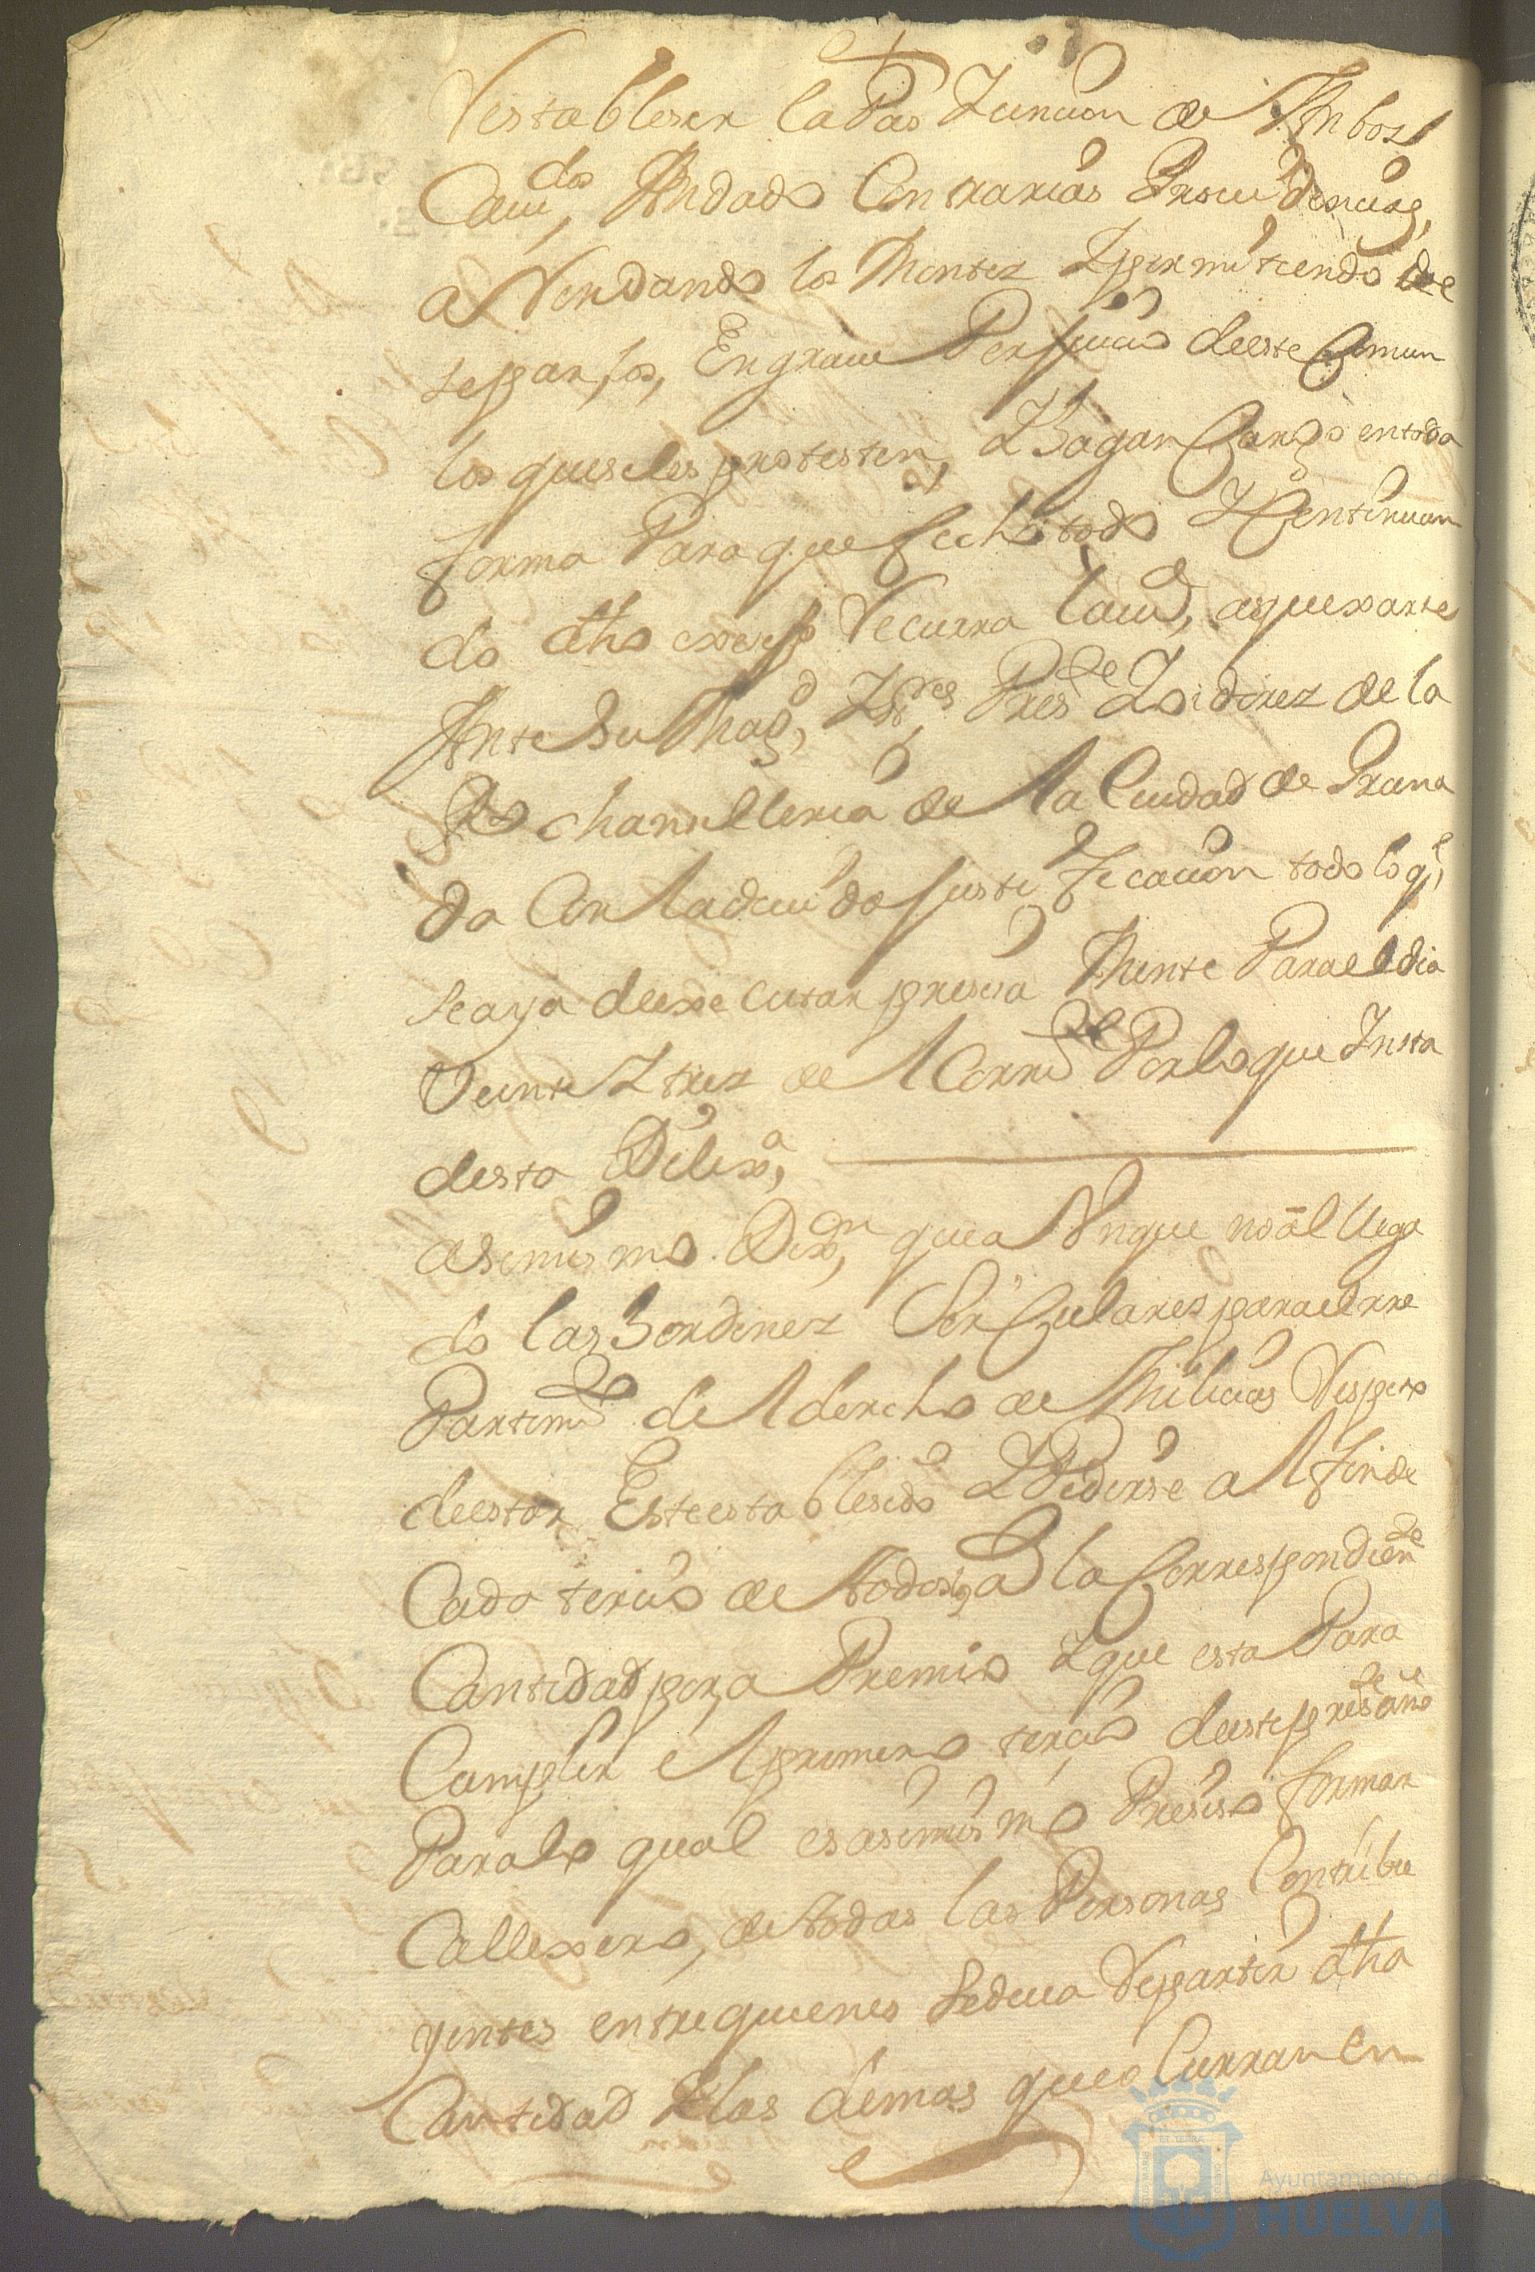 restableser la Pas Y union de Ambos
Cavi^dos, An dado Contrarias Provi dencias,
a Rendando los Montes Y permitiendo de
separlos, En grave Perjuicio de este Comun
los que se les protesten, Y hagan Cargo en toda
forma Para que fecho todo Y Continuan
do dho exceso Recurra la Ciu^d, a quexarse
Ante Su Mag^d, Y S^res Pres^te Y oidores de la
R^l chancilleria de la Ciudad de Grana
da Con la devida justificacion todo lo q^e,
se aya de executar presisa Mente Para el dia
Veinte Y tres de el Corri^te Por lo que Insta
desta Dilix^a,
asimismo Dix^on, que a Unque no an llega
do las hordenes Sirculares para el rre
Partim^to de el derecho de Milicias Respecto
de estar Este establesido Y Pedirse a el fin de
Cada tercio de Año la Correspondien^te
Cantidad por Apremio Y que esta Para
Cumplir el primero tercio de este pres^te año
Para lo qual es asimismo Presiso formar
Callexero, de todas las Personas Contribu
yentes entre quienes se deva Repartir dha
Cantidad Y las demas que oCurran en
Ayuntamiento de
HUELVA